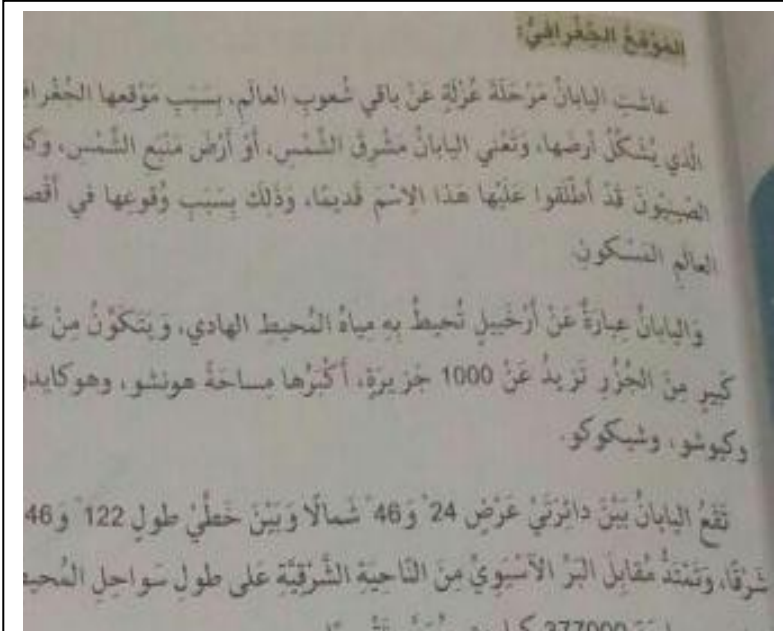 المَوْقِعُ الجُغْرافِيُّ:
عاشَتِ اليابانُ مَرْحَلَةَ عُزْلَةٍ عَنْ باقي شُعوبِ العالَمِ، بِسَبَبِ مَوْقِعِها
الَّذي يُشَكِّلُ أرضَها، وَتَعْني اليابانُ مَشْرِقَ الشَّمْسِ، أَوْ أَرْضَ مَنْبَعِ الشَّمْسِ،
الصّينِيّونَ قَدْ أَطْلَقوا عَلَيْها هَذا الاِسْمَ قَديمًا، وَذَلِكَ بِسَبَبِ وُقوعِها في
العالَمِ المَسْكونِ.
وَاليابانُ عِبارَةٌ عَنْ أَرْخَبيلٍ تُحيطُ بِهِ مِياهُ المُحيطِ الهادي، وَيَتَكَوَّنُ مِنْ
كَبيرٍ مِنَ الجُزُرِ تَزيدُ عَنْ 1000 جَزيرَةٍ، أَكْبَرُها مِساحَةً هونشو، وهوكايدو
وكيوشو، وشيكوكو.
تَقَعُ اليابانُ بَيْنَ دائِرَتَيْ عَرْضِ 24° وَ46° شَمالًا وَبَيْنَ خَطَّيْ طولِ 122° وَ46
شَرْقًا، وَتَمْتَدُّ مُقابِلَ البَرِّ الآسْيَوِيِّ مِنَ النّاحِيَةِ الشَّرْقِيَّةِ عَلى طولِ سَواحِلِ
377000